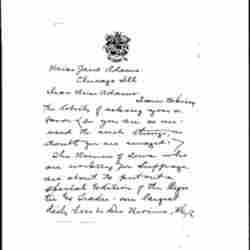 Miss Jane Addams.
Chicago Ill
Dear Miss Addams.
I am taking
the liberty of asking you a
favor (so you are so
used to such things,
doubt you are
The Women of Iowa who
are working for Suffrage
are about to put out a
Special Edition of the Regis
ter & Leader - our largest
daily here in Des Moines,